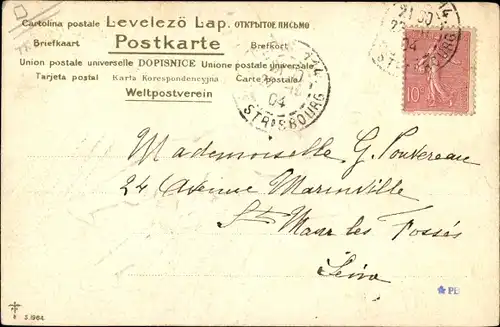 Cartolina postale Levelező Lap. ОТКРЫТОЕ ПИСЬМО
Briefkaart Postkarte Brefkort
Union postale universelle DOPISNICE Unione postale universale
Tarjeta postal Karta Korespondencyjna Carte postale
Weltpostverein
04
STRASBOURG
04
STRASBOURG
10
Mademoiselle G. Pouvereau
24 Avenue Marinville
St Maur les Fossés
Seine
S.1964.
PB